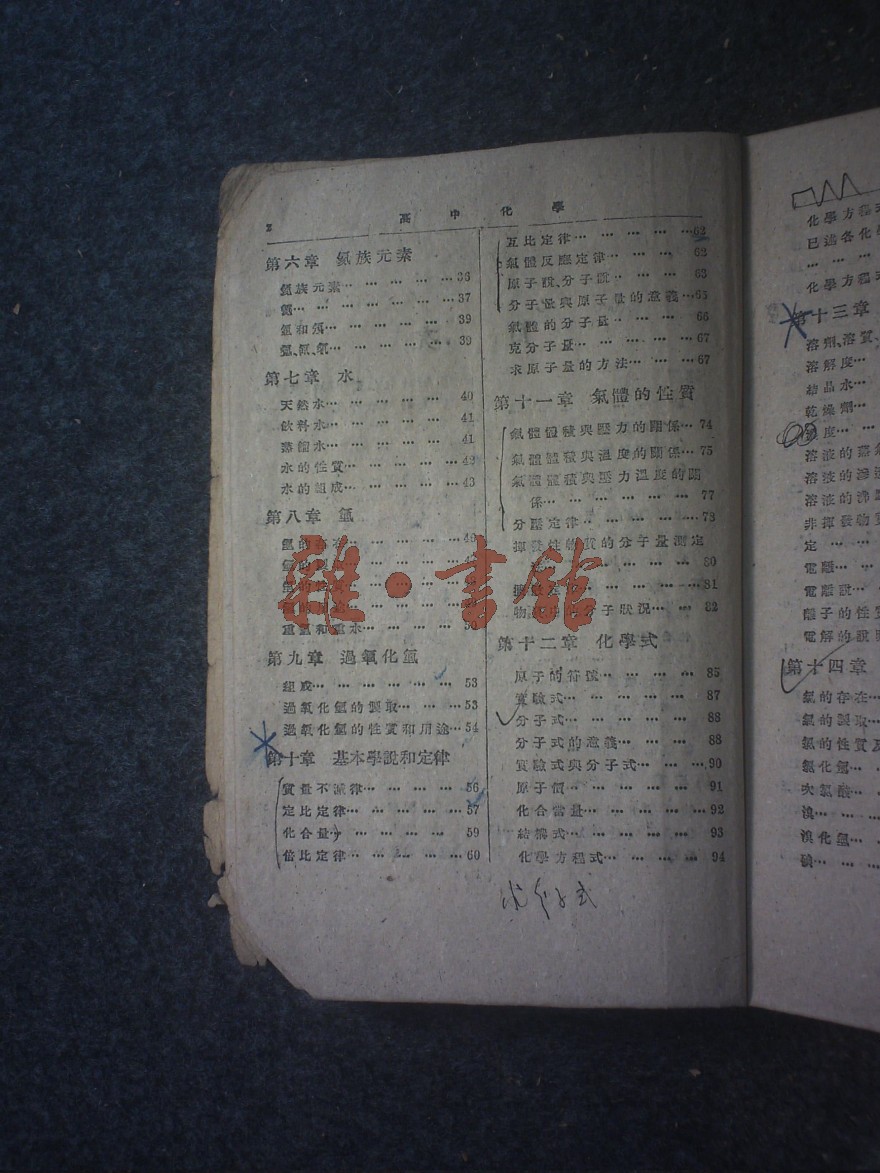 2 高中化學
第六章 氦族元素
氦族元素… … … … …36
氦… … … … … …37
氬和氖… … … … …39
氪、氙、氡… … … …39
第七章 水
天然水… … … … … 40
飲料水… … … … … 41
蒸餾水… … … … … 41
水的性質… … … … 42
水的組成… … … … 43
第八章 氫
氫的存在
重氫和重水
第九章 過氧化氫
組成… … … … … … 53
過氧化氫的製取… … …53
過氧化氫的性質和用途…54
第十章 基本學說和定律
質量不滅律… … … … 56
定比定律… … … … …57
化合量… … … … … 59
倍比定律… … … … …60
互比定律… … … … …62
氣體反應定律… … … … 63
原子說、分子說… … … 63
分子量與原子量的意義…65
氣體的分子量… … … … 66
克分子量… … … … …67
求原子量的方法… … …67
第十一章 氣體的性質
氣體體積與壓力的關係…74
氣體體積與溫度的關係…75
氣體體積與壓力溫度的關
係… … … … … … 77
分壓定律… … … … …78
揮發性物質的分子量測定
80
81
狀況… … 82
第十二章 化學式
原子的符號… … … … 85
實驗式… … … … … 87
分子式… … … … … 88
分子式的意義… … … 88
實驗式與分子式… … …90
原子價… … … … … 91
化合當量… … … … … 92
結構式… … … … … 93
化學方程式… … … … 94
分子式
雜·書館
化學方程式
已述各化學
… … … …
化學方程式
第十三章
溶劑、溶質、
溶解度…
結晶水…
乾燥劑…
度…
溶液的蒸氣
溶液的滲透
溶液的沸點
非揮發物質
定 … …
電離… …
電離說…
離子的性質
電解的說明
第十四章
氯的存在…
氯的製取…
氯的性質及
氯化氫…
次氯酸…
溴… …
溴化氫…
碘… …